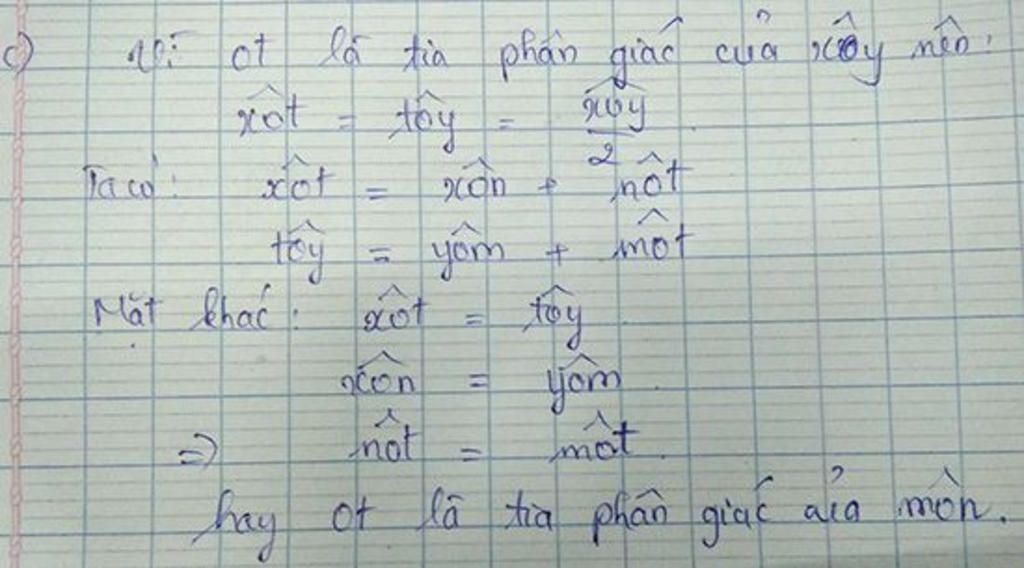 c) Vì ot là tia phân giác của xôy nên:
xôt = tôy = xôy / 2
Ta có: xôt = xôn + nôt
tôy = yôm + môt
Mặt khác: xôt = tôy
xôn = yôm
=> nôt = môt
hay ot là tia phân giác của môn.